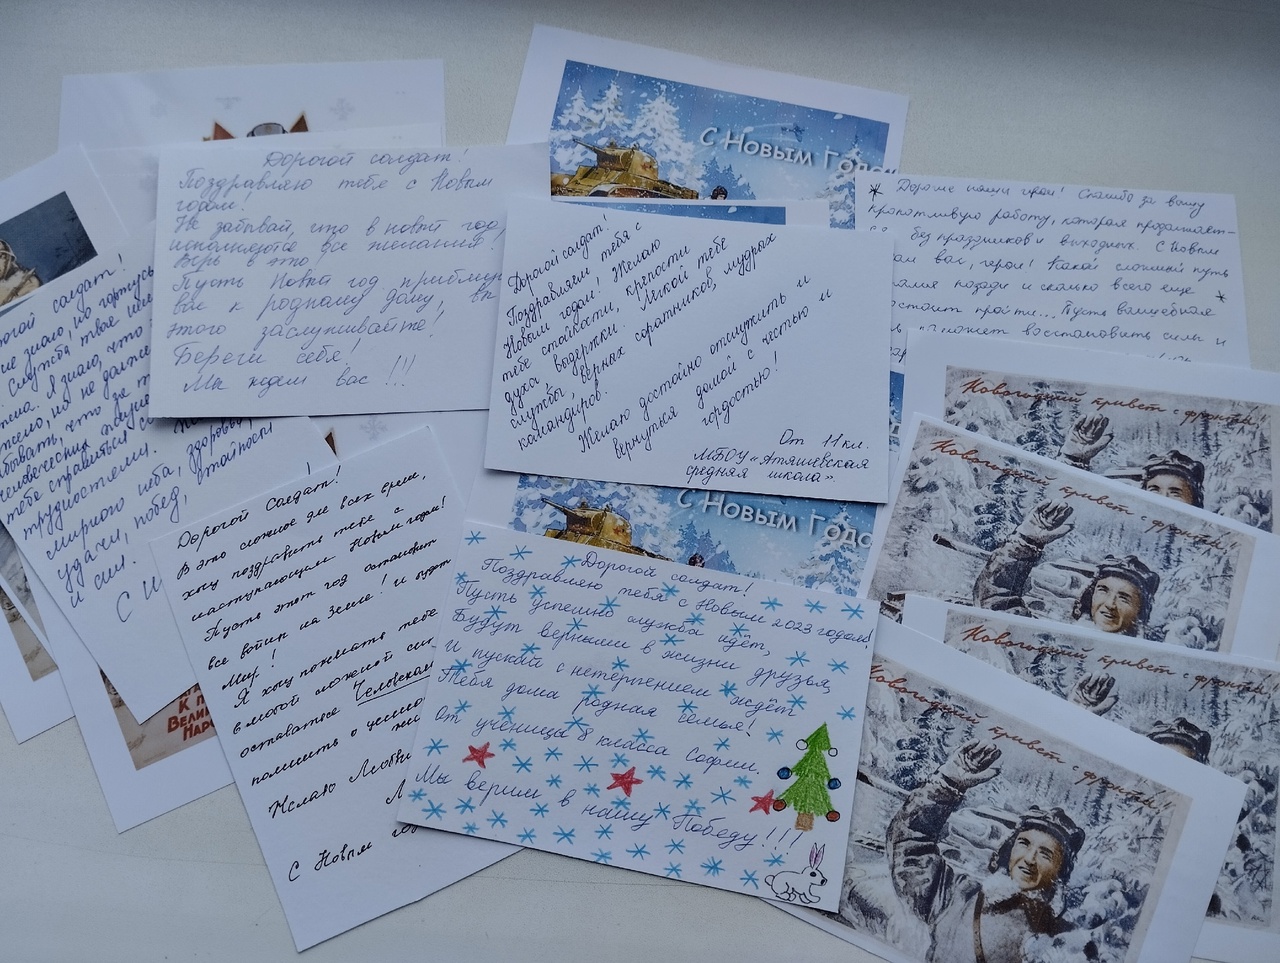 Дорогой солдат!
Поздравляю тебя с Новым
годом!
Не забывай, что в новый год
исполняются все желания,
верь в это!
Пусть Новый год приблизит
вас к родному дому, вы
этого заслуживайте!
Береги себя!
Мы ждем вас!!!
С Новым Годом
Дорогой солдат!
Поздравляем тебя с
Новым годом! Желаю
тебе стойкости, крепости
духа, выдержки. Легкой тебе
службы, верных соратников, мудрых
командиров.
Желаю достойно отслужить и
вернуться домой с честью и
гордостью!
От 11 кл.
МБОУ «Атяшевская
средняя школа».
* Дорогие наши герои! Спасибо за вашу
кропотливую работу, которая продолжает-
ся без праздников и выходных. С Новым
вас, герои! Какой сложный путь
позади и сколько всего еще *
пройти... Пусть волшебная
может восстановить силы и
солдат!
не знаю, но горжусь
служба твоя
Я знаю, что
но не долже
что за т
человеческих
тебе справиться со
трудностями.
мирного неба, здоровья,
удачи, побед, стойкости
и сил.
С Н
К п
Вели
Нар
Дорогой Солдат!
В это сложное для всех время,
хочу поздравить тебя с
наступающим Новым годом!
Пусть этот год остановит
все войны на Земле! и будет
Мир!
Я хочу пожелать тебе
в любой сложной
оставаться Человеком
помнить о
Желаю Любви
С Новым го
С Новым Годо
Дорогой солдат!
Поздравляю тебя с Новым 2023 годом!
Пусть успешно служба идёт,
Будут верными в жизни друзья,
И пускай с нетерпением ждёт
Тебя дома родная семья!
От ученицы 8 класса Софии.
Мы верим в нашу Победу!!!
Новогодний привет с фронта!!
Новогодний привет с фронта!!
Новогодний привет с фронта!!
Новогодний привет с фронта!!